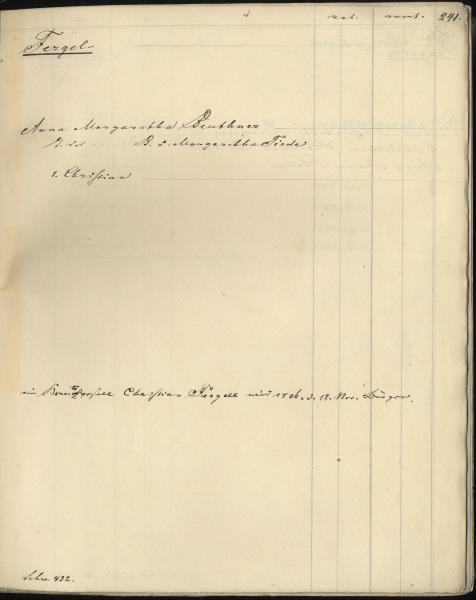 nat. mort. 241.
Fergel-
Anna Margaretha Beuthner
B. u. Margaretha Tiede
1. Christian
ein Christian Fergell wird 1736. d. 12. Nov. Bürger.
Schw. 432.